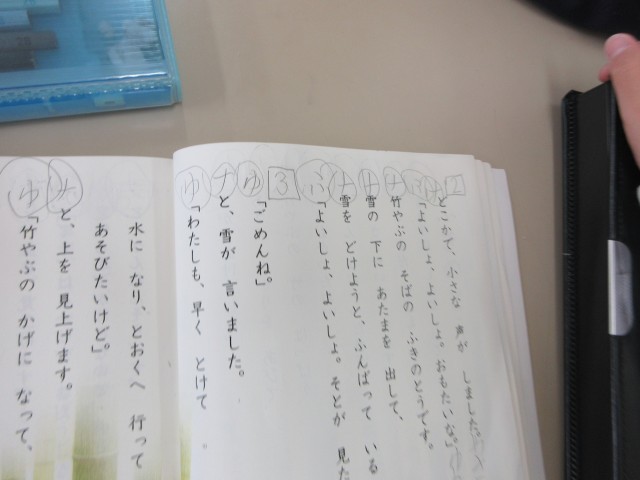 2
どこかで、小さな 声が しました。
「よいしょ、よいしょ。おもたいな。」
ナ
竹やぶの そばの ふきのとうです。
ナ
雪の 下に あたまを 出して、
ナ
雪を どけようと、ふんばって いる
ふ
「よいしょ、よいしょ。そとが 見た
3
ゆ
「ごめんね。」
ナ
と、雪が 言いました。
ゆ
「わたしも、早く とけて
水に なり、とおくへ 行って
あそびたいけど。」
ナ
と、上を 見上げます。
ゆ
「竹やぶの かげに なって、